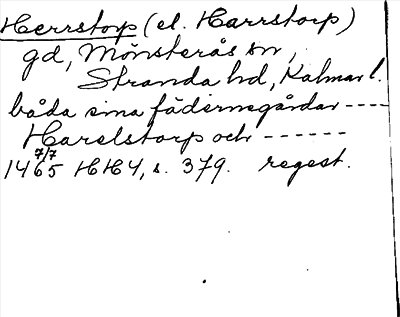 Herrstorp (el. Harrstorp)
gd, Mönsterås sn,
Stranda hd, Kalmar l.
båda sina fädernegårdar ----
Harelstorp och ------
7/7
1465 HH4, s. 379. regest.